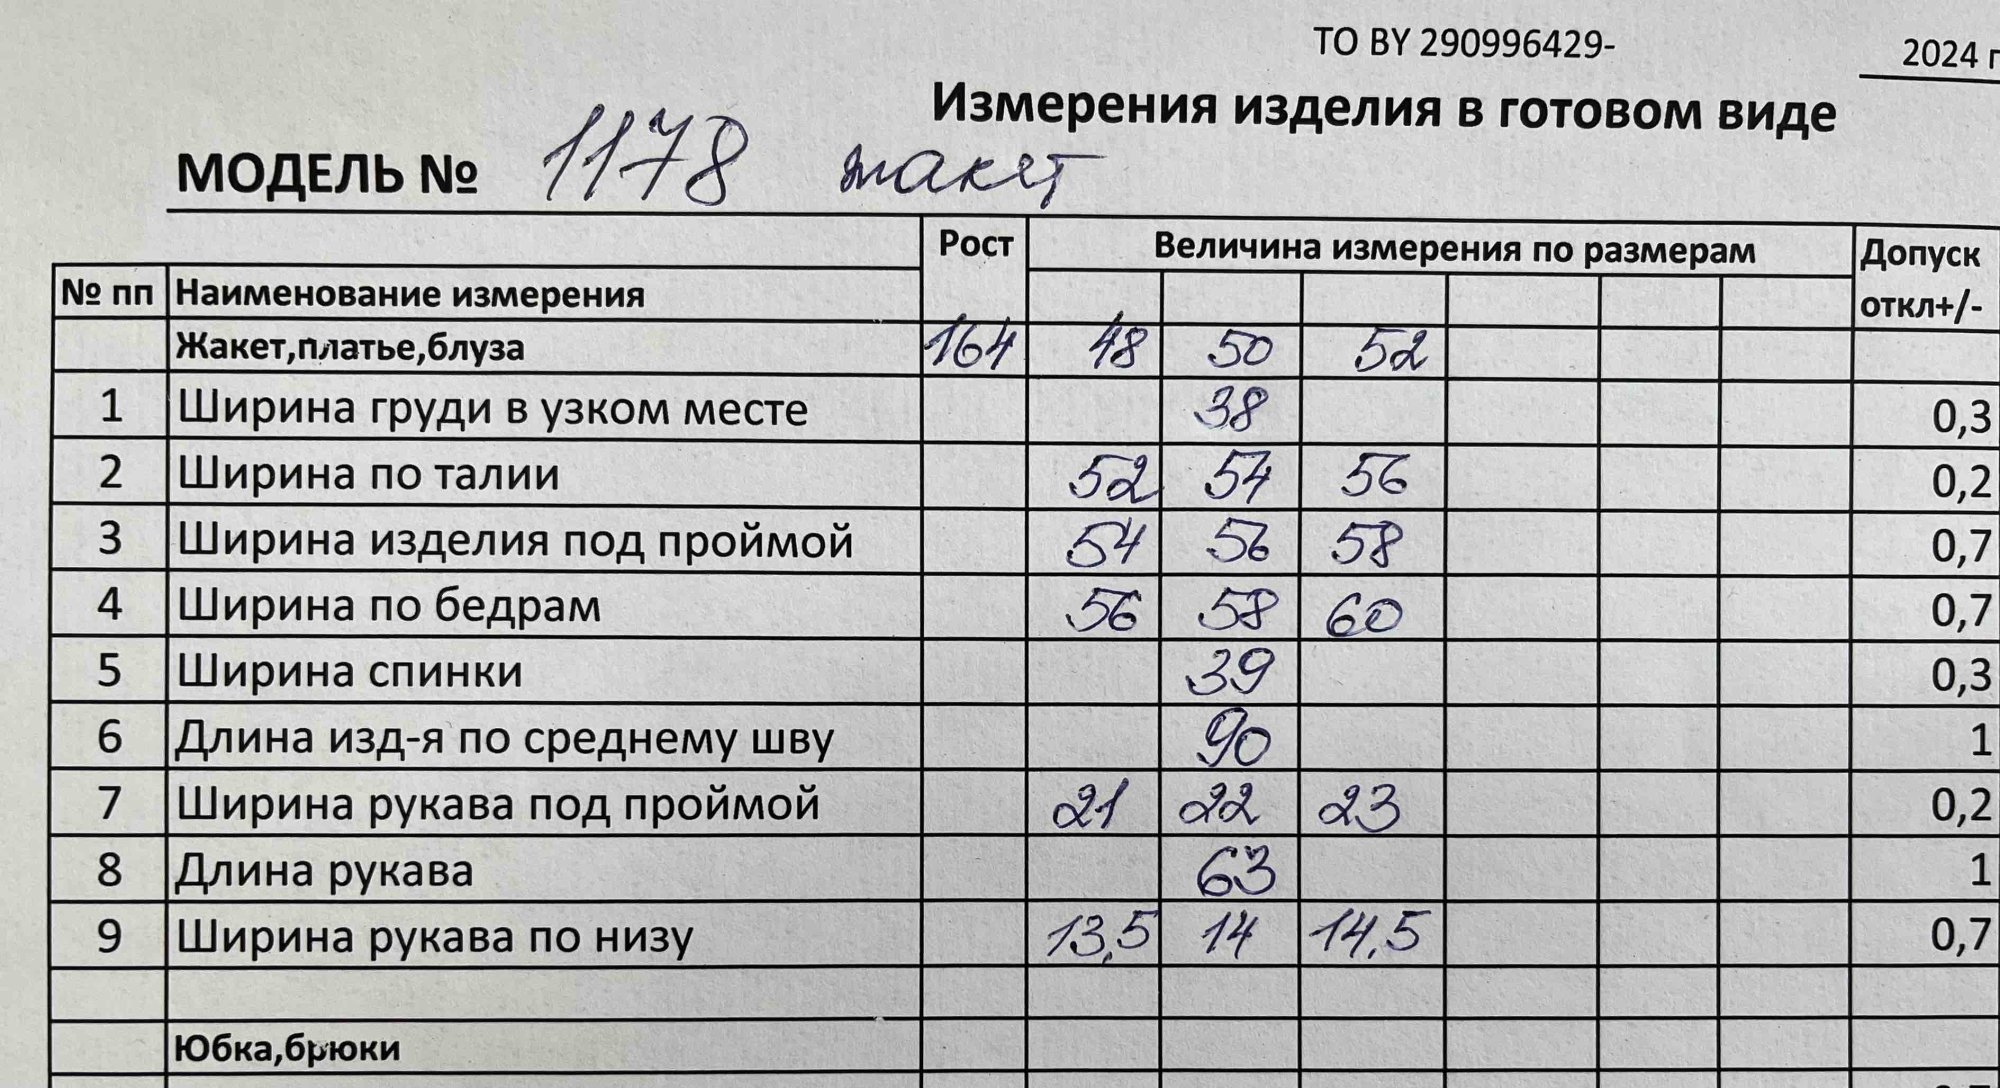 ТО BY 290996429-
2024 г
Измерения изделия в готовом виде
МОДЕЛЬ № 1178 жакет
Рост Величина измерения по размерам Допуск
№ пп Наименование измерения откл+/-
Жакет,платье,блуза 164 48 50 52
1 Ширина груди в узком месте 38 0,3
2 Ширина по талии 52 54 56 0,2
3 Ширина изделия под проймой 54 56 58 0,7
4 Ширина по бедрам 56 58 60 0,7
5 Ширина спинки 39 0,3
6 Длина изд-я по среднему шву 90 1
7 Ширина рукава под проймой 21 22 23 0,2
8 Длина рукава 63 1
9 Ширина рукава по низу 13,5 14 14,5 0,7
Юбка,брюки